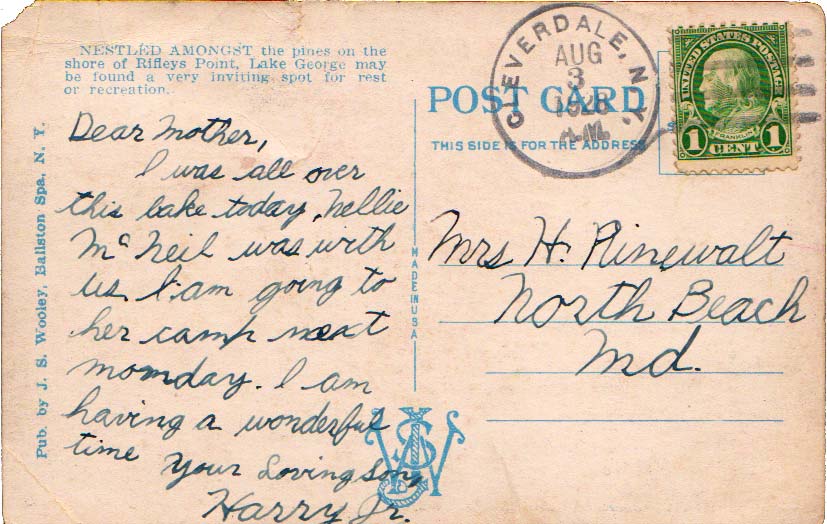 NESTLED AMONGST the pines on the
shore of Rifleys Point, Lake George may
be found a very inviting spot for rest
or recreation.
Pub. by J. S. Wooley, Ballston Spa, N. Y.
Dear Mother,
I was all over
this lake today, Nellie
McNeil was with
us. I am going to
her camp next
monday. I am
having a wonderful
time
Your Loving Son,
Harry Jr.
MADE IN USA
POST CARD
THIS SIDE IS FOR THE ADDRESS
CLEVERDALE, N.Y.
AUG
3
1928
A.M.
UNITED STATES POSTAGE
FRANKLIN
1 CENT 1
Mrs H. Rinewalt
North Beach
Md.